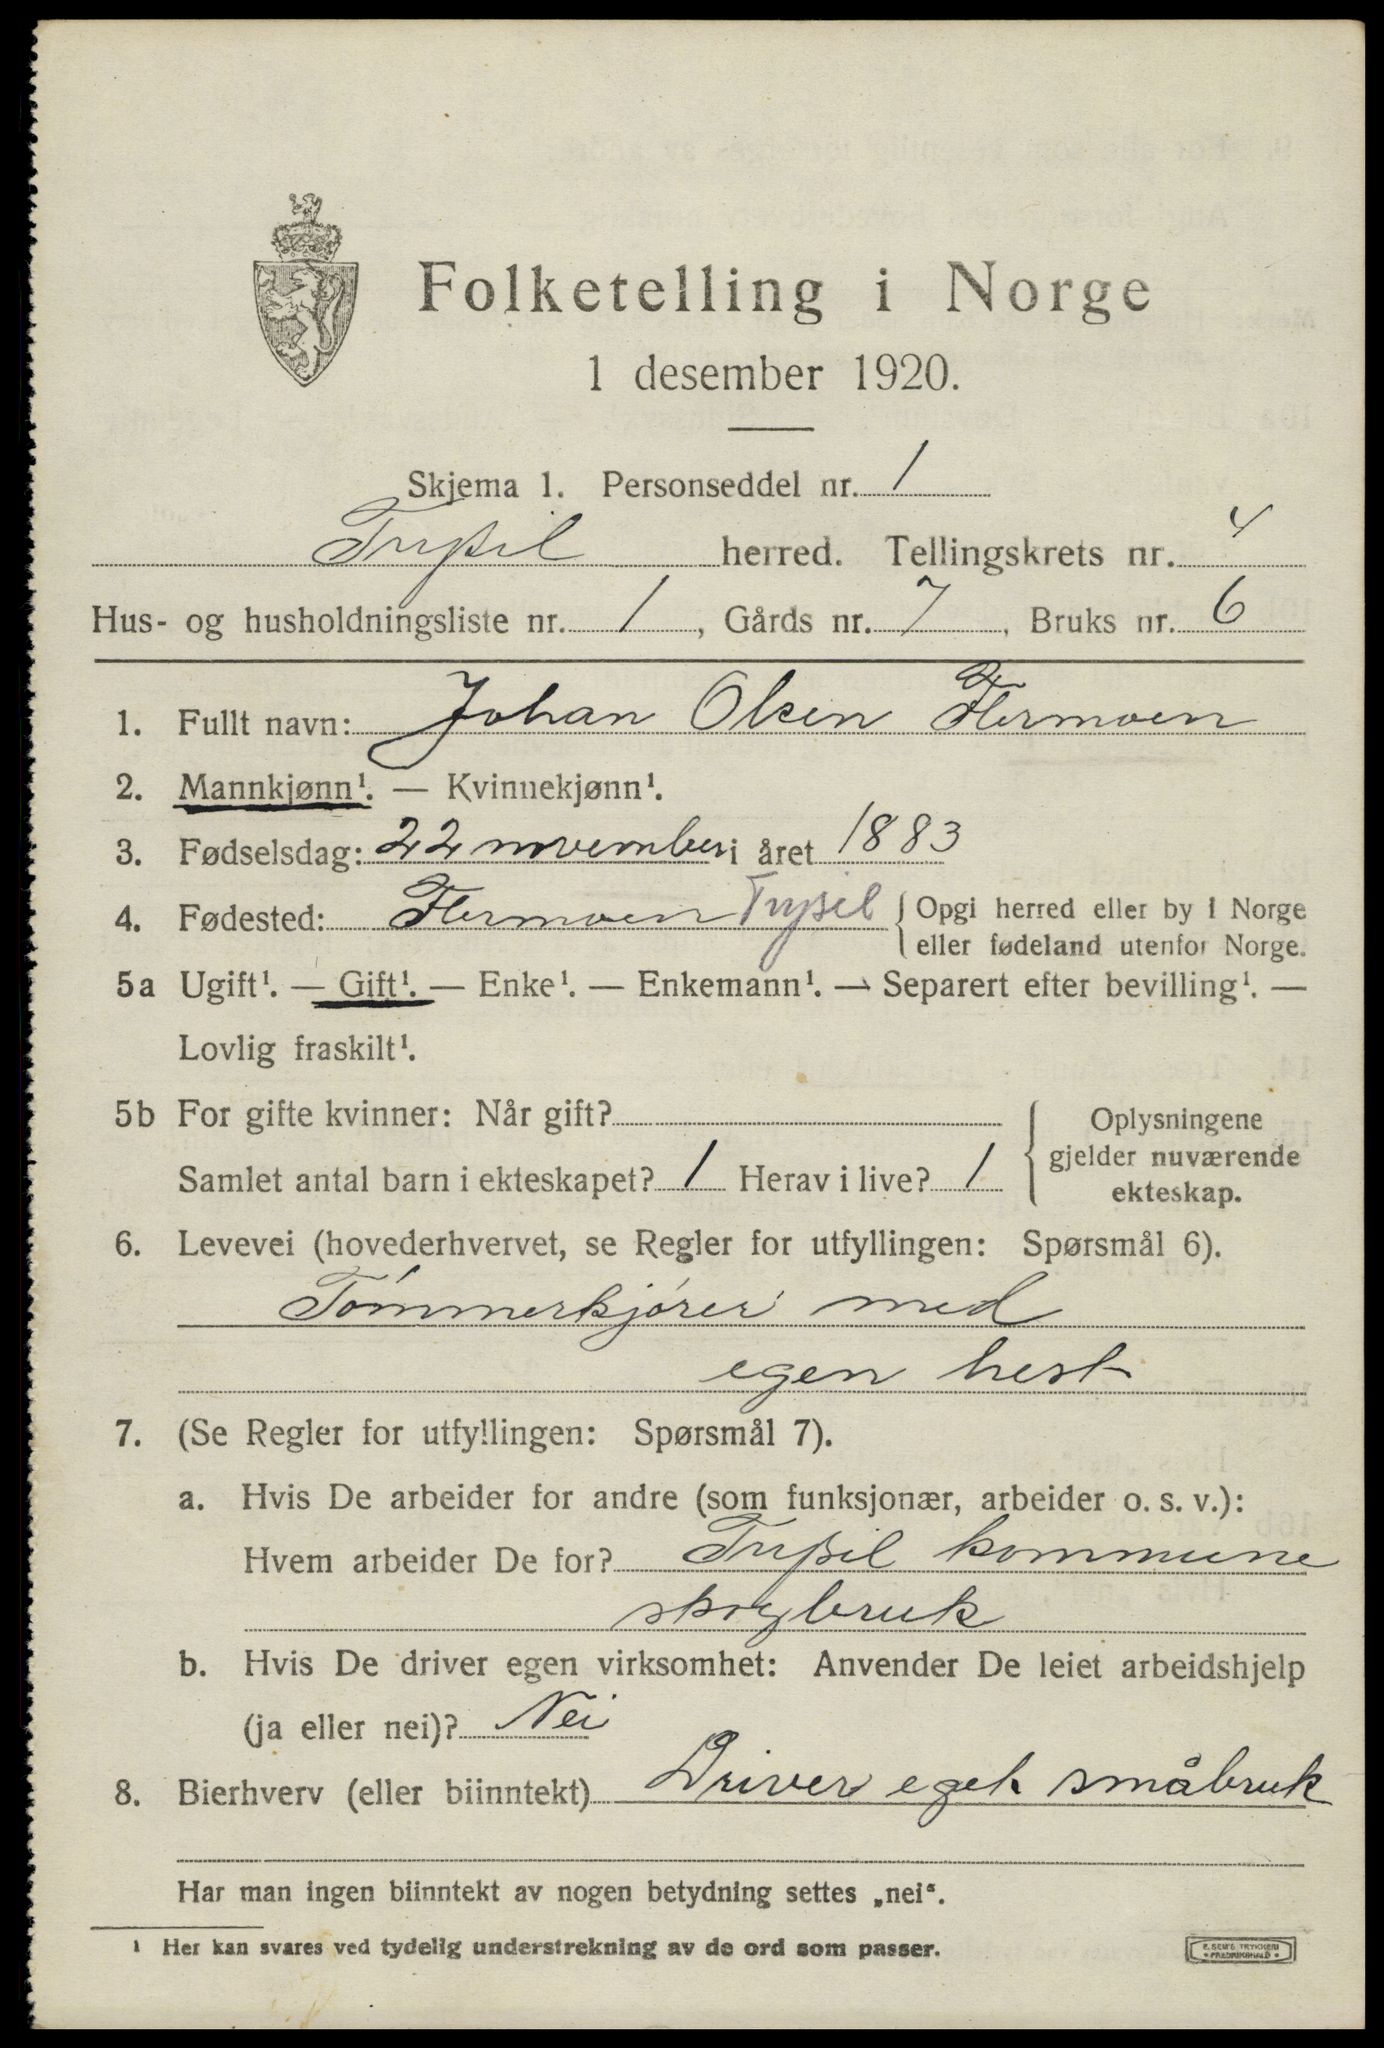 Folketelling i Norge
1 desember 1920.
Skjema 1. Personseddel nr. 1
Trysil herred. Tellingskrets nr. 4
Hus- og husholdningsliste nr. 1, Gårds nr. 7, Bruks nr. 6
1. Fullt navn: Johan Olsen Flermoen
2. Mannkjønn¹. — Kvinnekjønn¹.
3. Fødselsdag: 22 november i året 1883
4. Fødested: Flermoen Trysil { Opgi herred eller by i Norge
eller fødeland utenfor Norge.
5a Ugift¹. — Gift¹. — Enke¹. — Enkemann¹. — Separert efter bevilling¹. —
Lovlig fraskilt¹.
5b For gifte kvinner: Når gift?
Samlet antal barn i ekteskapet? 1 Herav i live? 1
Oplysningene
gjelder nuværende
ekteskap.
6. Levevei (hovederhvervet, se Regler for utfyllingen: Spørsmål 6).
Tømmerkjører med
egen hest
7. (Se Regler for utfyllingen: Spørsmål 7).
a. Hvis De arbeider for andre (som funksjonær, arbeider o. s. v.):
Hvem arbeider De for? Trysil kommune
skogbruk
b. Hvis De driver egen virksomhet: Anvender De leiet arbeidshjelp
(ja eller nei)? Nei
8. Bierhverv (eller biinntekt) Driver eget småbruk
Har man ingen biinntekt av nogen betydning settes „nei“.
¹ Her kan svares ved tydelig understrekning av de ord som passer.
E. SEM'S TRYKKERI
FREDRIKSHALD